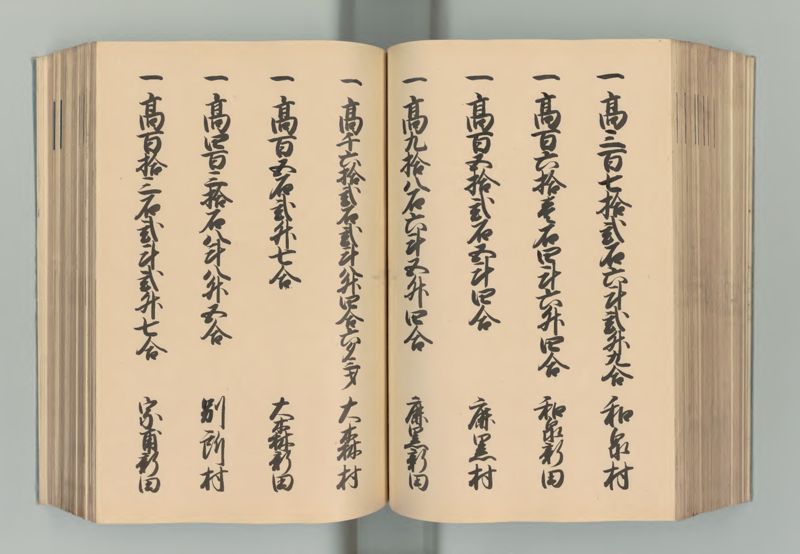 一 高三百七拾弐石六斗弐升九合 和泉村
一 高百六拾壱石四斗六升四合 和泉新田
一 高百五拾弐石五斗四合 麻黒村
一 高九拾八石六斗五升四合 麻黒新田
一 高千六拾弐石弐斗八升四合六勺三才 大森村
一 高百五石弐升七合 大森新田
一 高四百三拾石八斗八升五合 別所村
一 高百拾二石弐斗弐升七合 宗甫新田